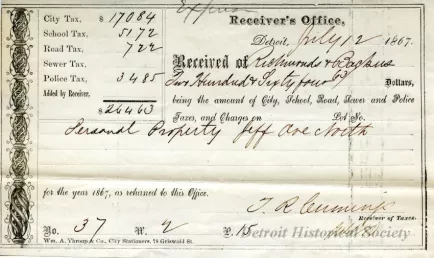 Express
City Tax, $ 170 84
School Tax, 51 72
Road Tax, 7 22
Sewer Tax,
Police Tax, 34 85
Added by Receiver.
$ 264 63
Receiver's Office,
Detroit, July 12 1867.
Received of Richmonds & Backus
Two Hundred & Sixty four 63 Dollars,
being the amount of City, School, Road, Sewer and Police
Taxes, and Charges on Lot No.
Personal Property Jeff Ave North
for the year 1867, as returned to this Office.
J. R. Cummings
Receiver of Taxes.
No. 37 W. 2 P. 15
Wm. A. Throop & Co., City Stationers, 78 Griswold St.
Detroit Historical Society